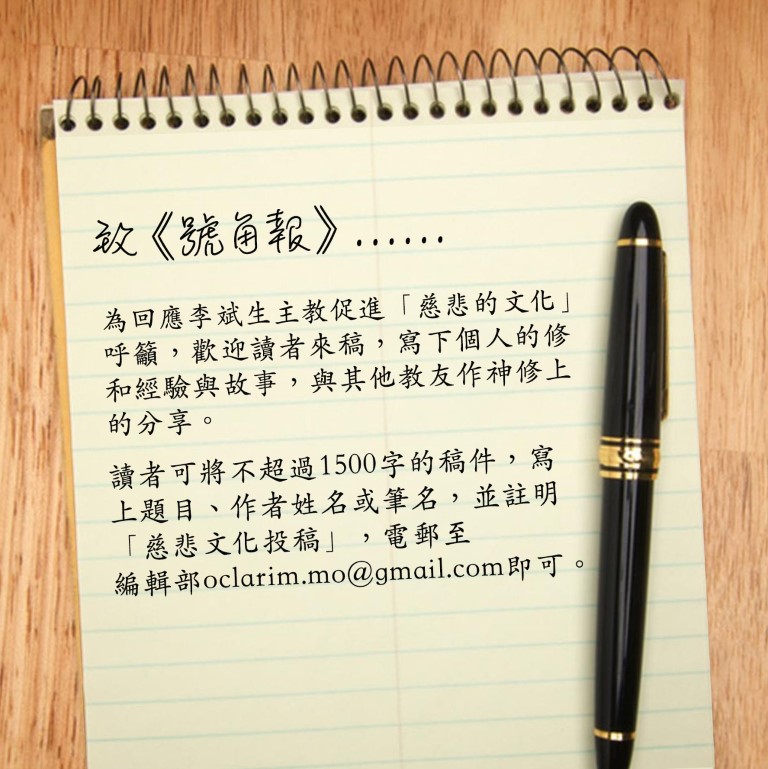 致《號角報》......
為回應李斌生主教促進「慈悲的文化」
呼籲，歡迎讀者來稿，寫下個人的修
和經驗與故事，與其他教友作神修上
的分享。
讀者可將不超過1500字的稿件，寫
上題目、作者姓名或筆名，並註明
「慈悲文化投稿」，電郵至
編輯部oclarim.mo@gmail.com即可。